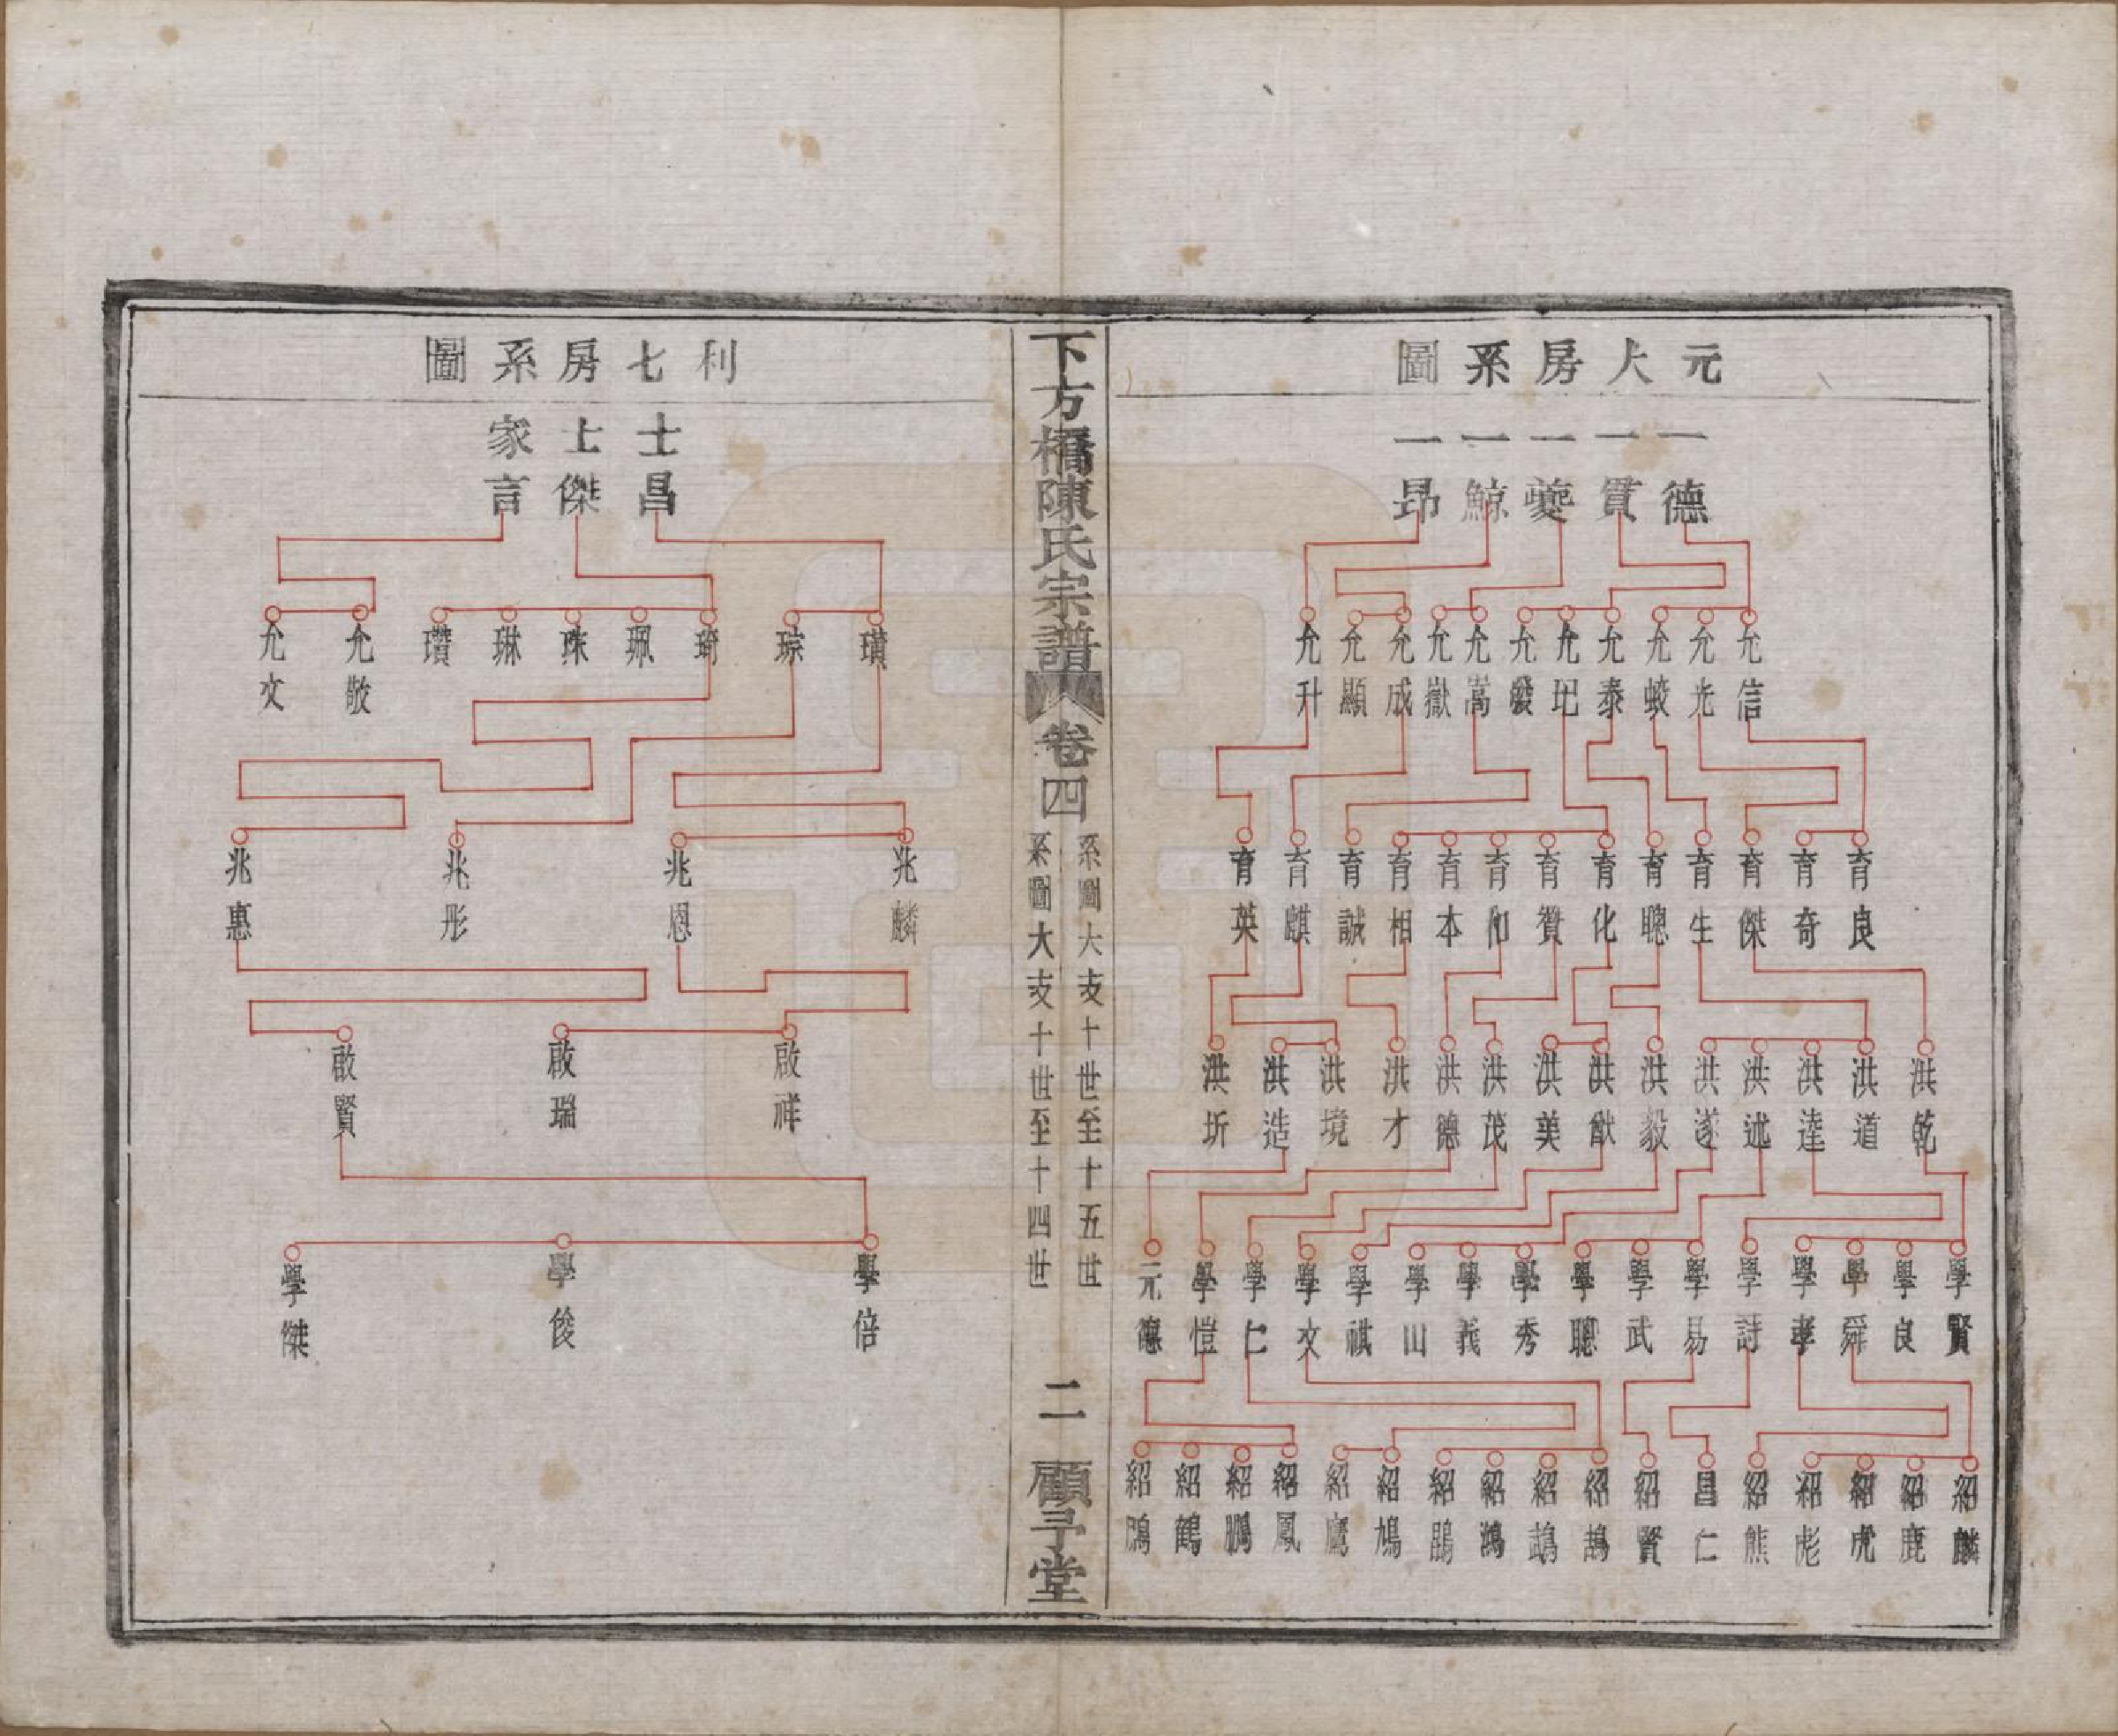 元大房系圖
一德 一貫 一夔 一鯨 一昂
允信 允光 允蛟 允泰 允圯 允發 允嵩 允嶽 允成 允顯 允升
育良 育奇 育傑 育生 育聰 育化 育贊 育和 育本 育相 育誠 育麒 育英
洪乾 洪道 洪達 洪述 洪遂 洪毅 洪猷 洪美 洪茂 洪德 洪才 洪境 洪造 洪圻
學賢 學良 學舜 學孝 學詩 學易 學武 學聰 學秀 學義 學山 學祺 學文 學仁 學愷 元德
紹麟 紹鹿 紹虎 紹彪 紹熊 昌仁 紹賢 紹鵠 紹鵡 紹鴻 紹鵑 紹鳩 紹鷹 紹鳳 紹鵬 紹鶴 紹
下方橋陳氏宗譜
卷四
系圖大支十世至十五世
系圖大支十世至十四世
二
顧予堂
利七房系圖
士昌 士傑 家言
璜 琮 琦 珮 珠 琳 瓚 允敬 允文
兆麟 兆恩 兆彤 兆惠
啟祥 啟瑞 啟賢
學倍 學俊 學傑